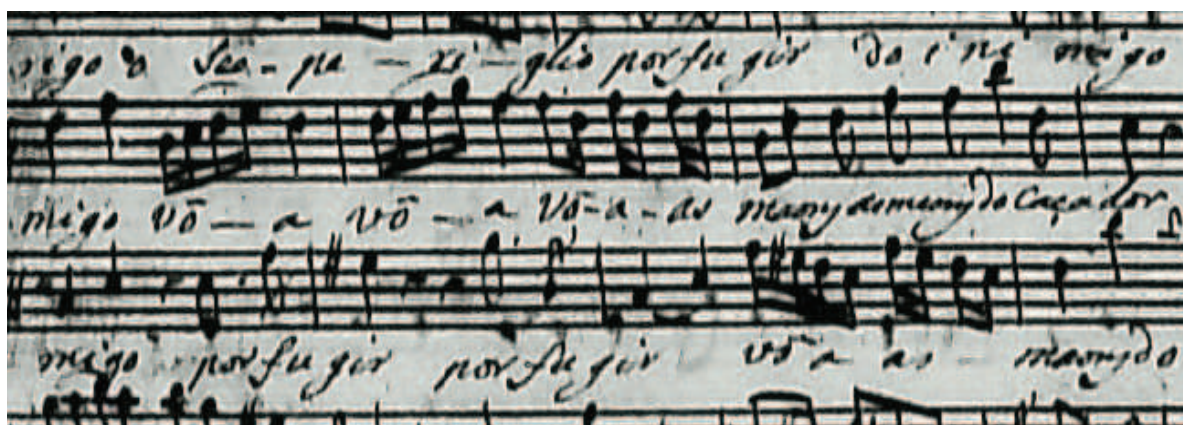 migo o seo - pe - ri - glio por fu gir do ini migo
migo võ - a võ - a Võ - a - as maons do Caçador
migo por fu gir por fu gir võ a as maons do